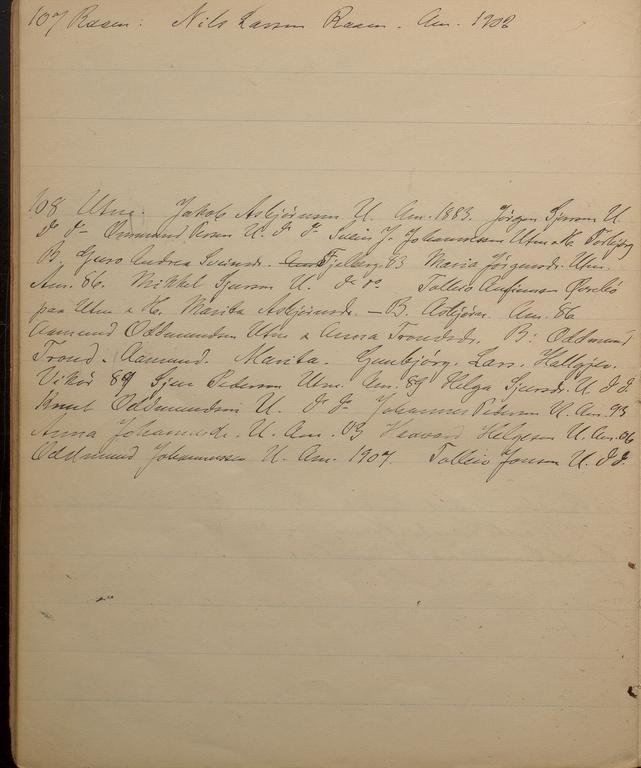 107 Raaen: Nils Larsen Raaen. Am. 1908
108 Utne. Jakob Asbjörnsen U. Am. 1883. Jörgen Sjursen U.
Do Do Ommund Aasen U. Do Do Svein J. Johannessen Utne & H. Torbjörg
B. Guro Andrea Sveinsd. Fjelberg. 83 Maria Jörgensd. Utne.
Am. 86. Mikkel Sjursen U. do do Tolleiv
paa Utne & H. Marita Asbjörnsd. — B. Asbjörn. Am. 86
Aamund Oddmundsen Utne & Anna Trondsd. B: Oddmund
Trond. Aamund. Marita. Gunbjörg. Lars. Hallgjer.
Vikör 89 Sjur Pederson Utne. Am. 89 Helga Sjursd. U. Do Do.
Knut Oddmundsen U. Do Do Johannes Pederson U. Am. 93
Anna Johannesd. U. Am. 03 Haavard Helgesen U. Am. 06
Oddmund Johannessen U. Am. 1907. Tolleiv Jonsen U. Do Do.